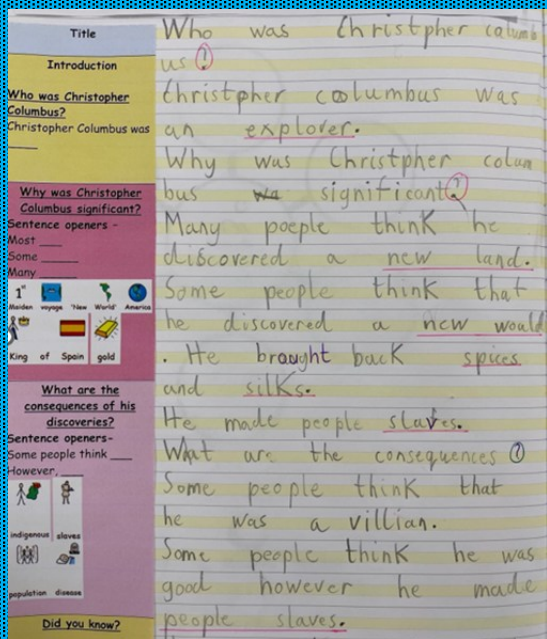 Title
Introduction
Who was Christopher
Columbus?
Christopher Columbus was
Why was Christopher
Columbus significant?
Sentence openers -
Most
Some
Many
1st
Maiden voyage 'New World' America
King of Spain gold
What are the
consequences of his
discoveries?
Sentence openers-
Some people think
However,
indigenous slaves
population disease
Did you know?
Who was Christpher calumb
us ?
Christpher coolumbus was
an explorer.
Why was Christpher colum
bus wa significant?
Many poeple think he
discovered a new land.
Some people think that
he discovered a new would
. He brought back spices
and silks.
He made people slaves.
What are the consequences ?
Some people think that
he was a villian.
Some people think he was
good however he made
people slaves.